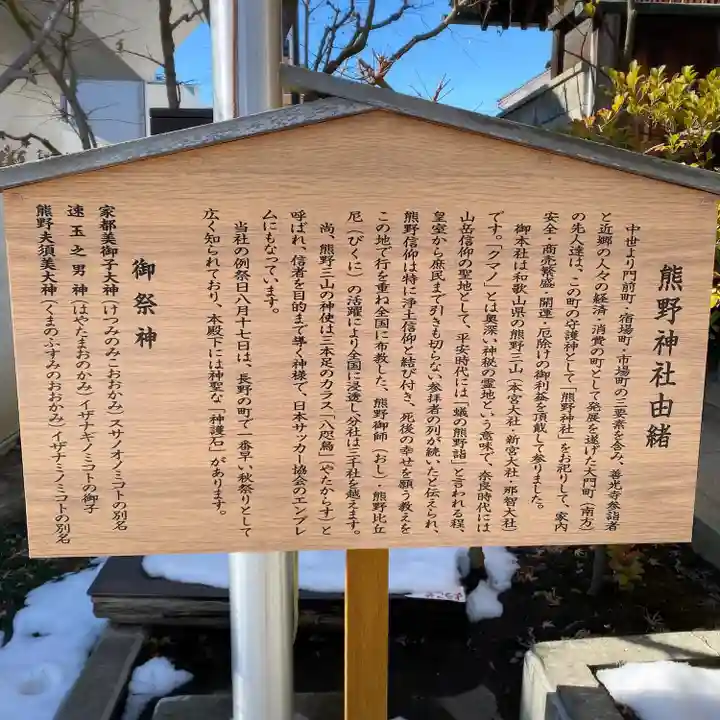 熊野神社由緒
中世より門前町・宿場町・市場町の三要素を含み、善光寺参詣者
と近郷の人々の経済・消費の町として発展を遂げた大門町(南方)
の先人達は、この町の守護神として「熊野神社」をお祀りして、家内
安全・商売繁盛・開運・厄除けの御利益を頂戴して参りました。
御本社は和歌山県の熊野三山(本宮大社・新宮大社・那智大社)
です。「クマノ」とは奥深い神秘の霊地という意味で、奈良時代には
山岳信仰の聖地として、平安時代には「蟻の熊野詣」と言われる程、
皇室から庶民まで引きも切らない参拝者の列が続いたと伝えられ、
熊野信仰は特に浄土信仰と結び付き、死後の幸せを願う教えを
この地で行を重ね全国に布教した、熊野御師(おし)・熊野比丘
尼(びくに)の活躍により全国に浸透し分社は三千社を越えます。
尚、熊野三山の神使は三本足のカラス「八咫烏」(やたからす)と
呼ばれ、信者を目的まで導く神様で、日本サッカー協会のエンブレ
ムにもなっています。
当社の例祭日八月十七日は、長野の町で一番早い秋祭りとして
広く知られており、本殿下には神聖な「神護石」があります。
御祭神
家都美御子大神(けつみのみこおおかみ)スサノオノミコトの別名
速玉之男神(はやたまおのかみ)イザナギノミコトの御子
熊野夫須美大神(くまのふすみのおおかみ)イザナミノミコトの別名